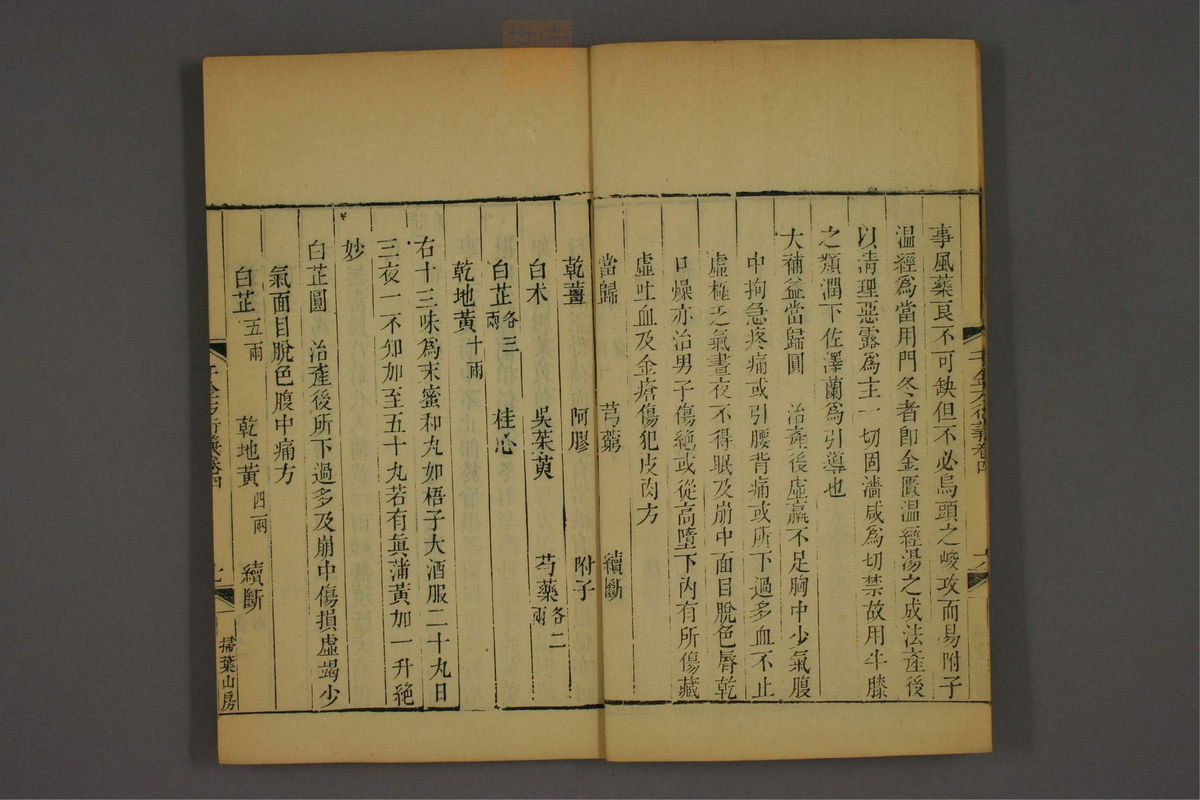 事風藥良不可缺但不必烏頭之峻攻而易附子
温經爲當用門冬者卽金匱温經湯之成法產後
以清理惡露爲主一切固濇咸爲切禁故用牛膝
之類潤下佐澤蘭爲引導也
大補益當歸圓　治產後虛羸不足胸中少氣腹
中拘急疼痛或引腰背痛或所下過多血不止
虛極乏氣晝夜不得眠及崩中面目脫色脣乾
口燥亦治男子傷絶或從高墮下內有所傷藏
虛吐血及金瘡傷犯皮肉方
當歸　芎藭　續斷
乾薑　阿膠　附子
白朮　吳茱萸　芍藥各二兩
白芷各三兩　桂心
乾地黃十兩
右十三味爲末蜜和丸如梧子大酒服二十丸日
三夜一不知加至五十丸若有眞蒲黃加一升絶
妙
白芷圓　治產後所下過多及崩中傷損虛竭少
氣面目脫色腹中痛方
白芷五兩　乾地黃四兩　續斷
千金方衍義卷四
掃葉山房